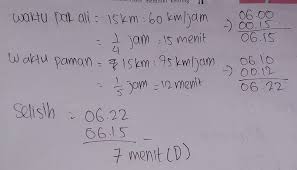 waktu pak ali = 15km : 60 km/jam → 06.00
00.15
= 1/4 jam = 15 menit 06.15
Waktu paman = 15km : 75 km/jam → 06.10
00.12
= 1/5 jam = 12 menit 06.22
Selisih = 06.22
06.15 -
7 menit (D)